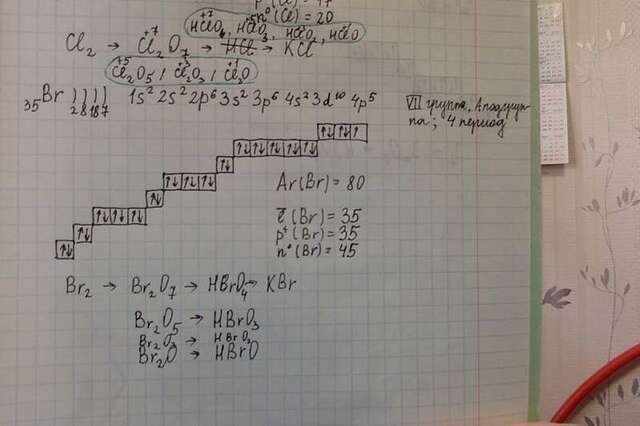 p⁺(Cl) = 17
n⁰(Cl) = 20
HClO₄, HClO₃, HClO₂, HClO
Cl₂ → Cl₂⁺⁷O₇ → HCl → KCl
Cl₂⁺⁵O₅, Cl₂⁺³O₃, Cl₂⁺¹O
₃₅Br ) ) ) ) 2 8 18 7 1s² 2s² 2p⁶ 3s² 3p⁶ 4s² 3d¹⁰ 4p⁵
VII группа, А подгруп-
па; 4 период
Ar(Br) = 80
ē(Br) = 35
p⁺(Br) = 35
n⁰(Br) = 45
Br₂ → Br₂O₇ → HBrO₄ → KBr
Br₂O₅ → HBrO₃
Br₂O₃ → HBrO₂
Br₂O → HBrO